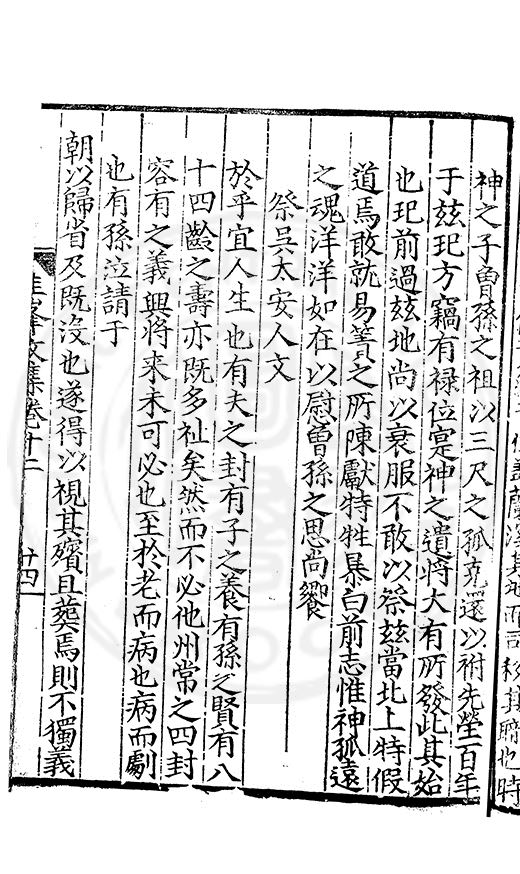 神之子曾孫之祖以三尺之孤克還以祔先塋百年
于茲玘方竊有禄位寔神之遺將大有所發此其始
也玘前過茲地尚以衰服不敢以祭茲當北上特假
道焉敢就易簀之所陳獻特牲暴白前志惟神孤遠
之魂洋洋如在以慰曾孫之思尚饗
祭吳太安人文
於乎宜人生也有夫之封有子之養有孫之賢有八
十四齡之壽亦既多祉矣然而不必他州常之四封
容有之義興將來未可必也至於老而病也病而劇
也有孫泣請于
朝以歸省及既沒也遂得以視其殯且葬焉則不獨義
文集卷十二
廿四